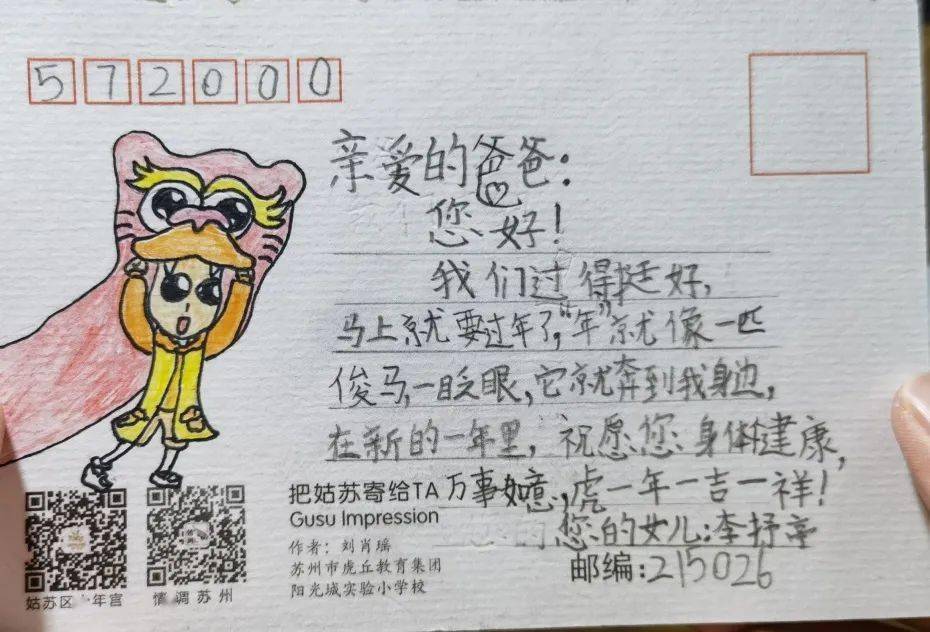 572000
亲爱的爸爸:
您好!
我们过得挺好,
马上就要过年了,“年”就像一匹
俊马,一眨眼,它就奔到我身边,
在新的一年里,祝愿您身体健康,
万事如意,虎一年一吉一祥!
您的女儿:李抒亭
邮编:215026
把姑苏寄给TA
Gusu Impression
作者:刘肖瑶
苏州市虎丘教育集团
阳光城实验小学校
姑苏区 年宫
情调苏州